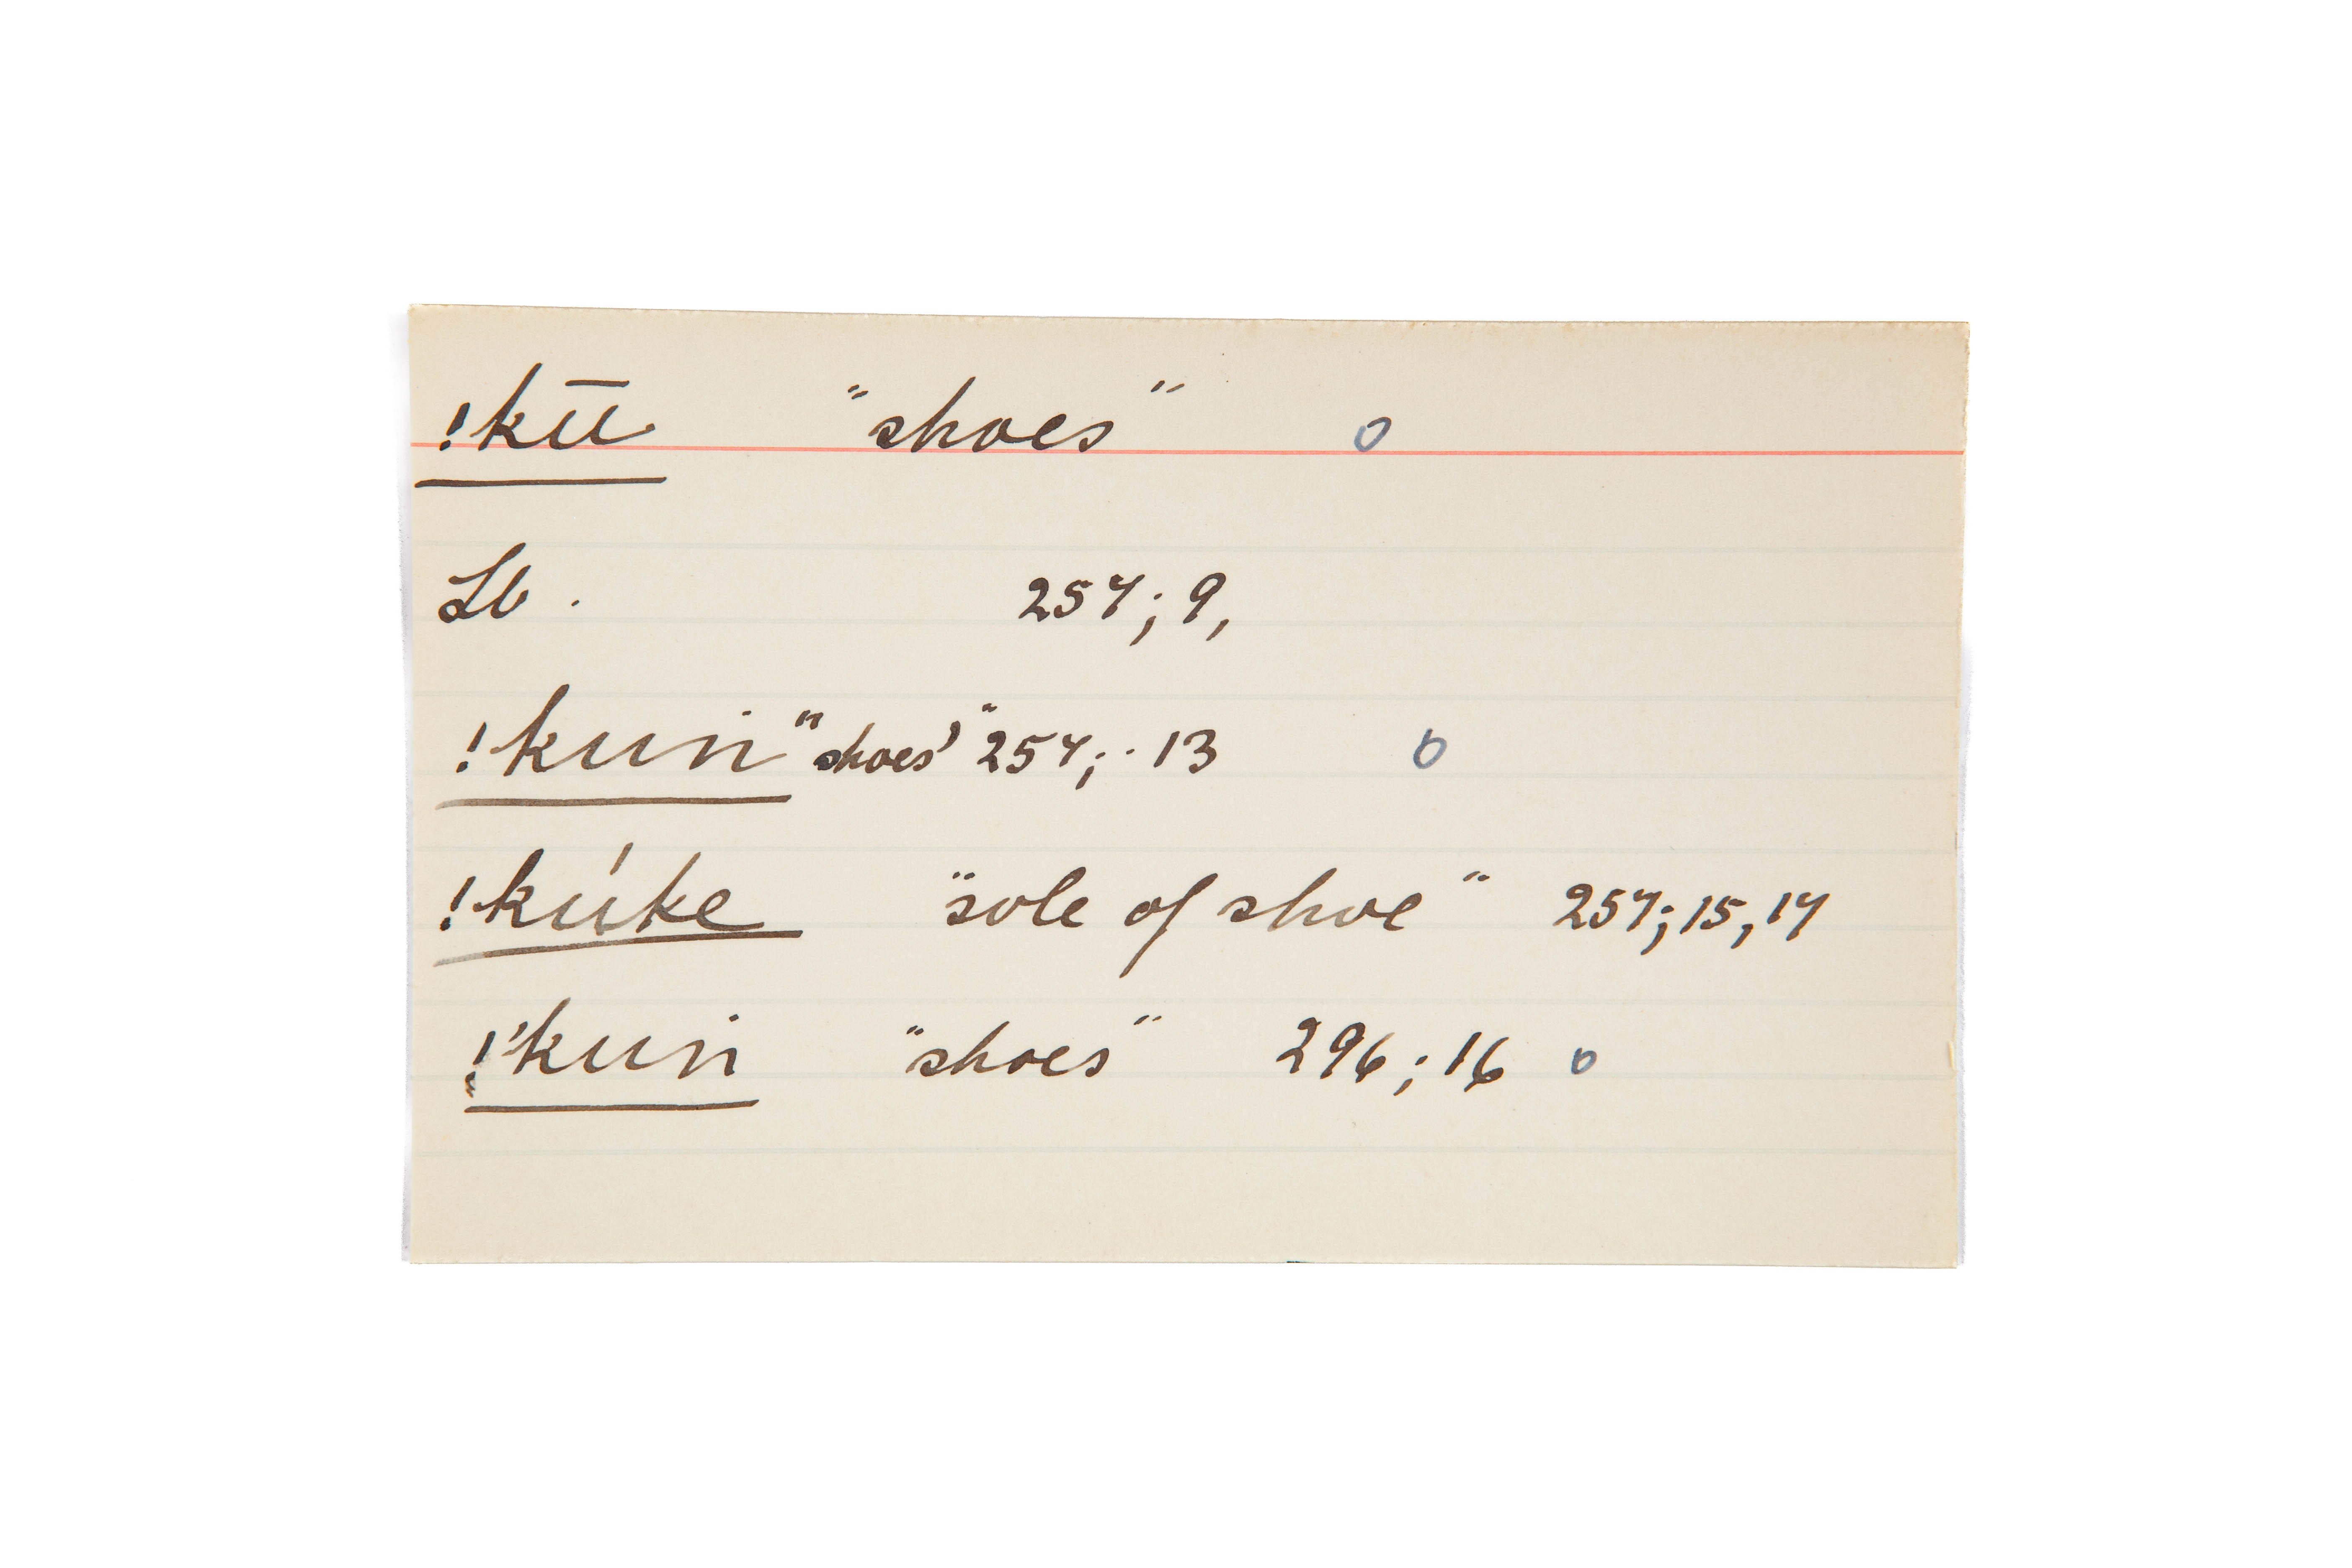 !kū "shoes" o
Lb. 257; 9,
!kuṅ "shoes" 257; 13 o
!kúke "sole of shoe" 257; 15, 17
!'kuṅ "shoes" 296; 16 o